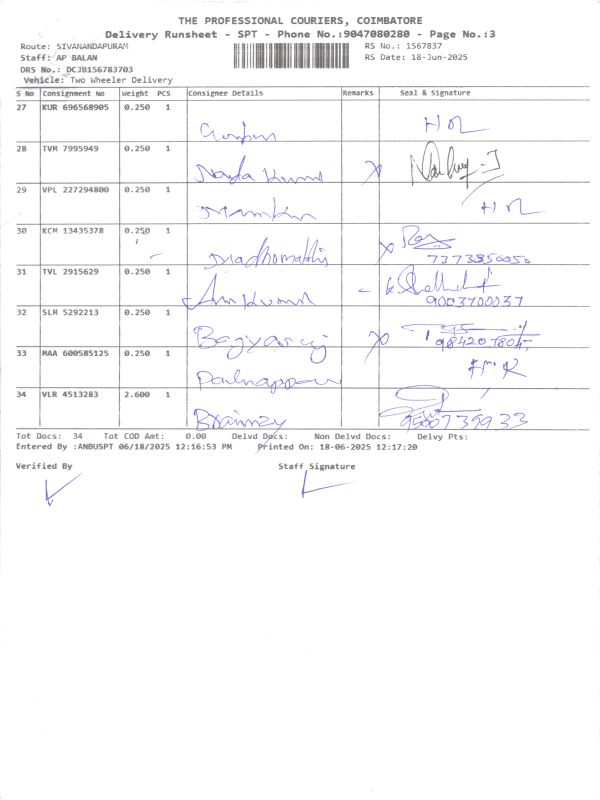 THE PROFESSIONAL COURIERS, COIMBATORE
Delivery Runsheet - SPT - Phone No.:9047080280 - Page No.:3
Route: SIVANANDAPURAM RS No.: 1567837
Staff: AP BALAN RS Date: 18-Jun-2025
DRS No.: DCJB156783703
Vehicle: Two Wheeler Delivery
S No Consignment No Weight PCS Consignee Details Remarks Seal & Signature
27 KUR 696568905 0.250 1
28 TVR 7995949 0.250 1
29 VPL 227294800 0.250 1
30 KCM 13435378 0.250 1
Madhomathi
7373850050
31 TVL 2915629 0.250 1
9003700037
32 SLM 5292213 0.250 1
Bagyaraj
33 MAA 600585125 0.250 1
34 VLR 4513283 2.600 1
9500739933
Tot Docs: 34 Tot COD Amt: 0.00 Delvd Docs: Non Delvd Docs: Delvy Pts:
Entered By :ANBUSPT 06/18/2025 12:16:53 PM Printed On: 18-06-2025 12:17:20
Verified By Staff Signature